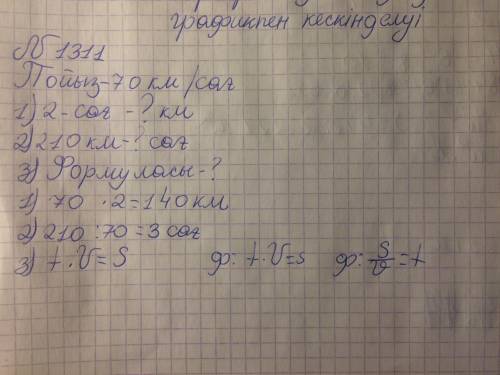 графикпен кескінделуі
№ 1311
Пойыз-70 км/сағ
1) 2-сағ -? км
2) 210 км-? сағ
3) Формуласы-?
1) 70 · 2 = 140 км
2) 210 : 70 = 3 сағ
3) t · V = S ф: t · V = s ф: S/V = t